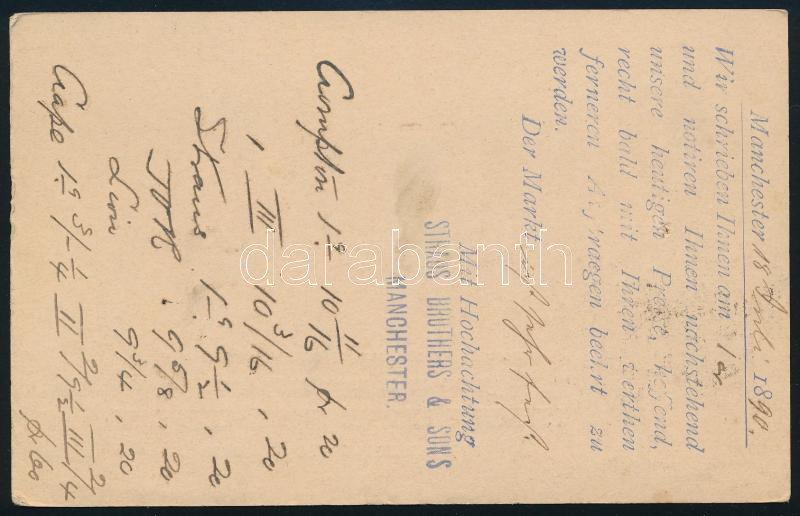 Manchester 18 Juli 1890.
Wir schrieben Ihnen am
und notiren Ihnen nachstehend
unsere heutigen Preise, hoffend,
recht bald mit Ihren werthen
ferneren Aufträgen beehrt zu
werden.
Der Markt ist sehr fest.
Mit Hochachtung
STRAUS BROTHERS & SONS
MANCHESTER.
Crompton 1º 10 11/16 fr 20
" III 10 3/16 " 20
Straus 1º 9 1/2 " 20
9 5/8 " 20
Lion 9 3/4 " 20
fr 60
darabanth